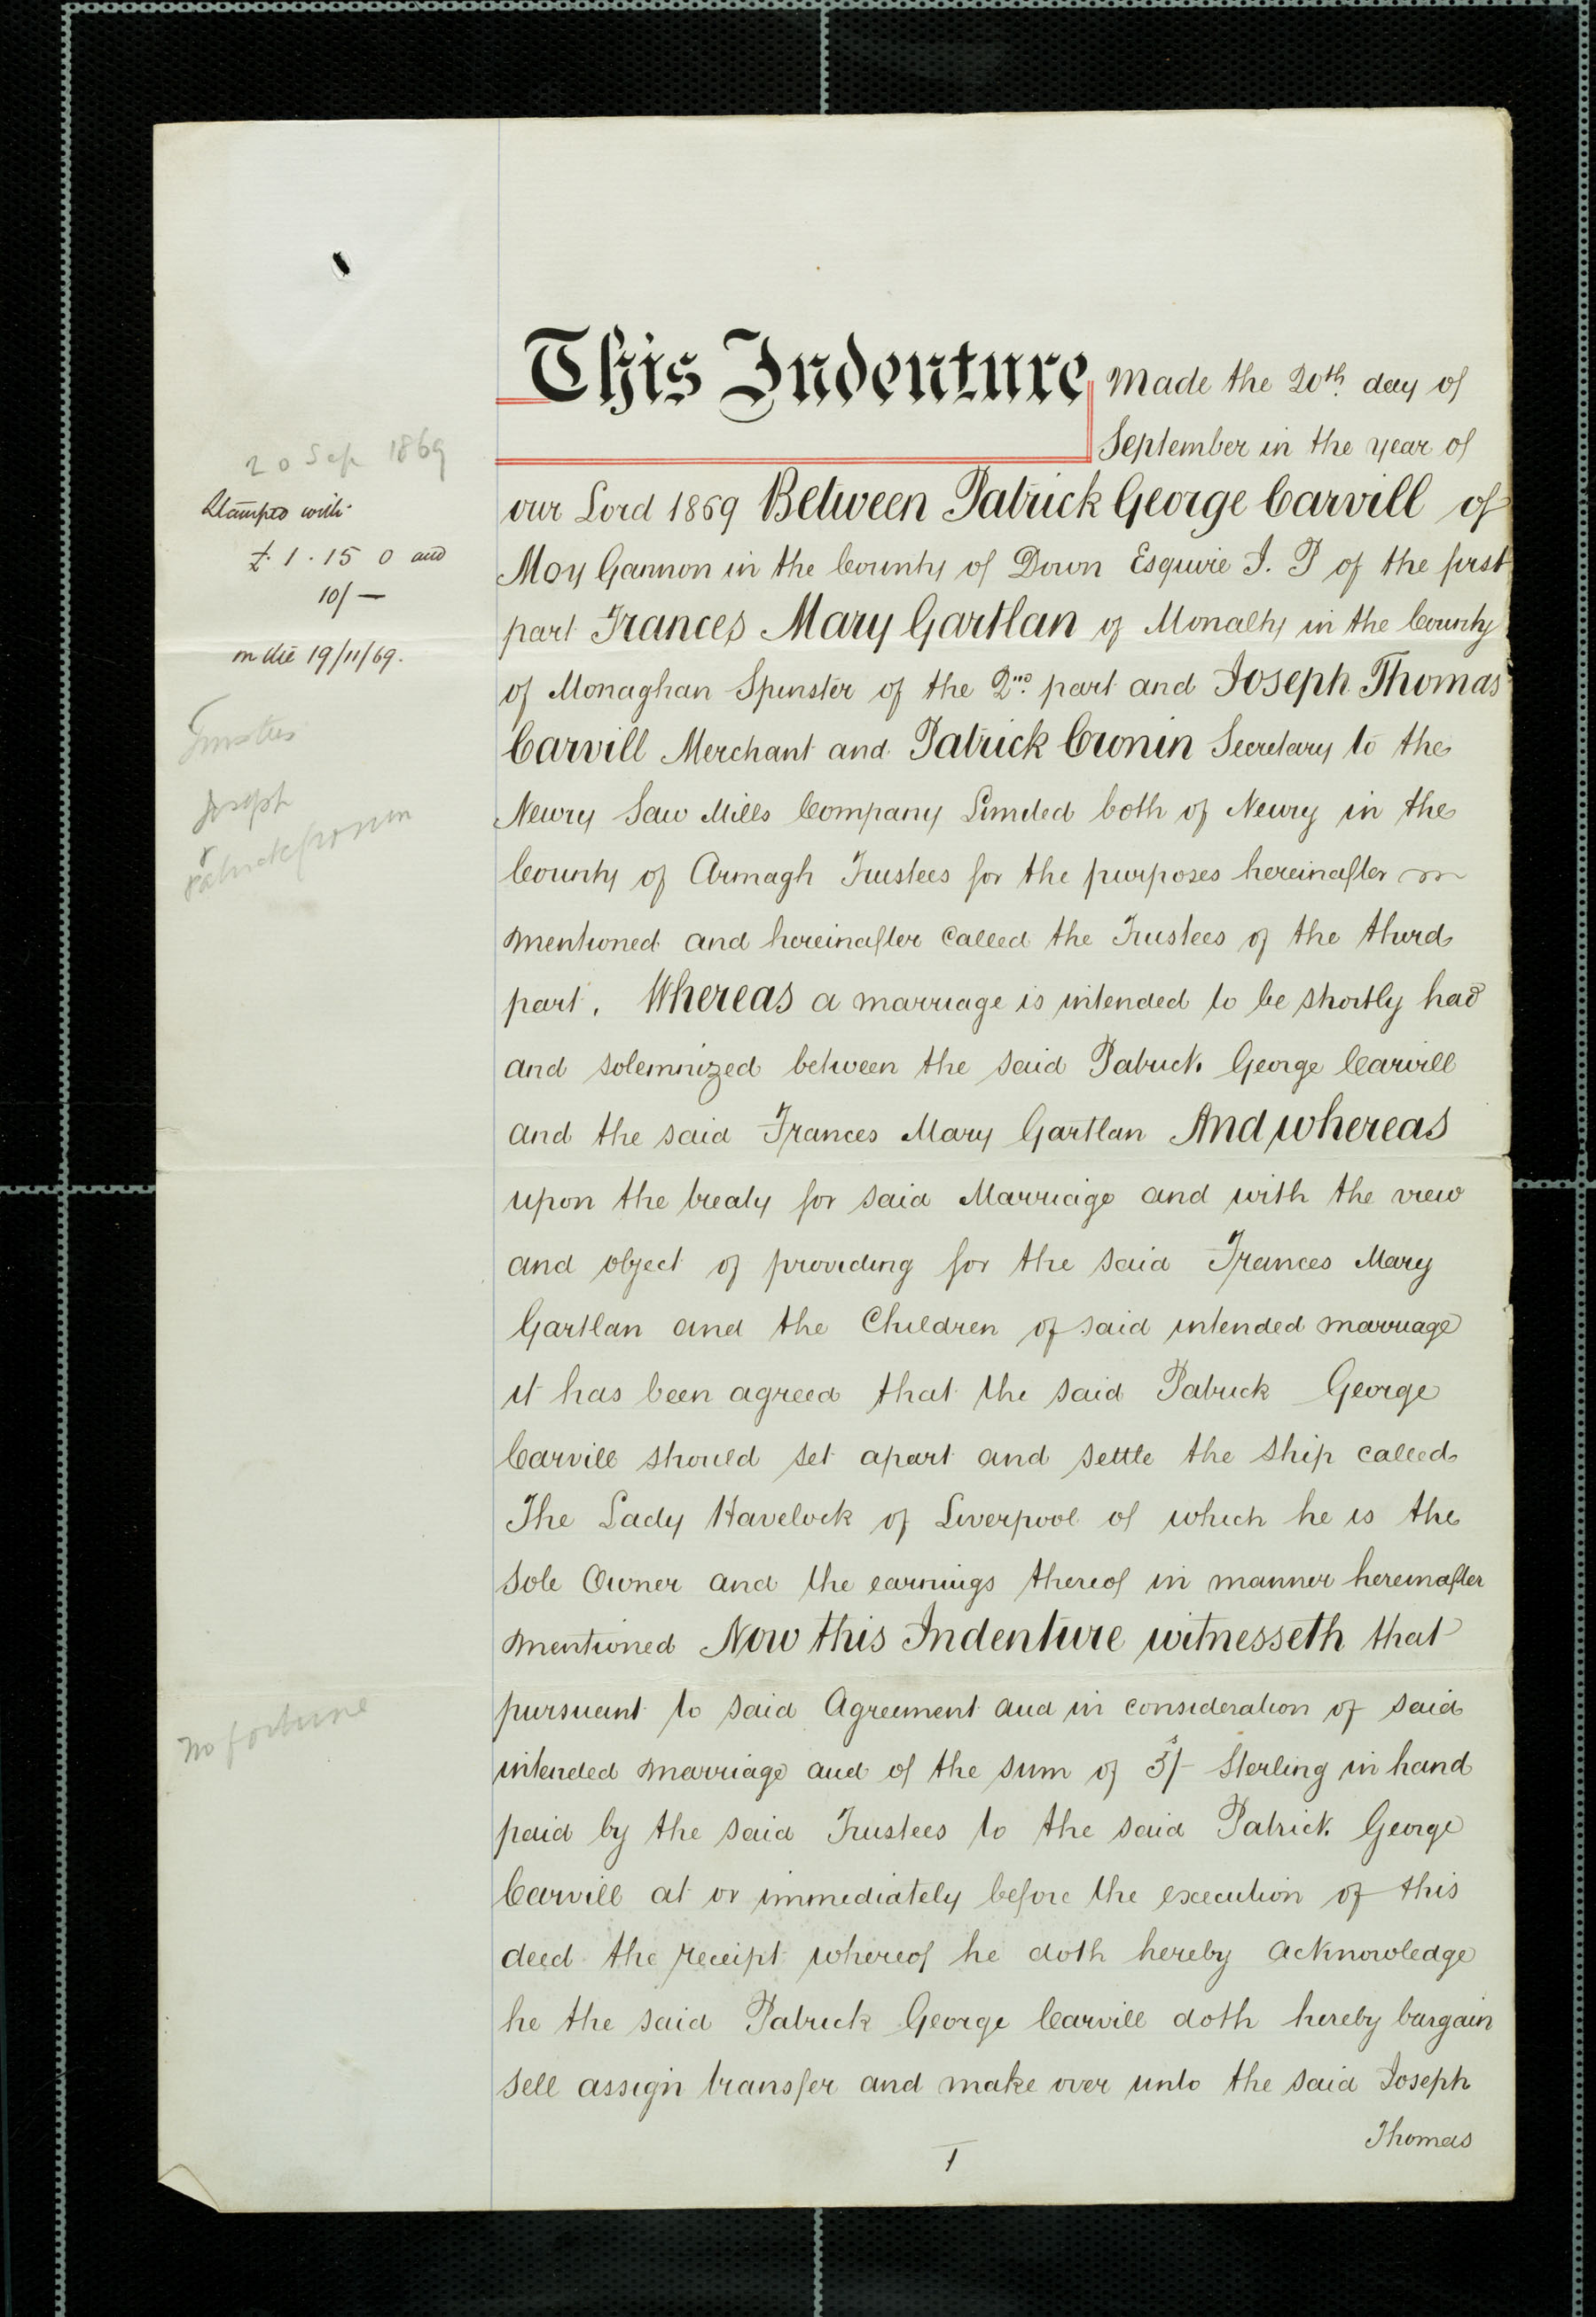 20 Sep 1869
Stamped with
£1.15 0 and
10/—
on die 19/11/69.
Trustees
Joseph
&
Patrick Cronin
no fortune
This Indenture Made the 20th day of
September in the year of
our Lord 1869 Between Patrick George Carvill of
Moy Gannon in the County of Down Esquire J. P of the first
part Frances Mary Gartlan of Monalty in the County
of Monaghan Spinster of the 2nd part and Joseph Thomas
Carvill Merchant and Patrick Cronin Secretary to the
Newry Saw Mills Company Limited both of Newry in the
County of Armagh Trustees for the purposes hereinafter
mentioned and hereinafter called the Trustees of the third
part. Whereas a marriage is intended to be shortly had
and solemnized between the said Patrick George Carvill
and the said Frances Mary Gartlan And whereas
upon the treaty for said Marriage and with the view
and object of providing for the said Frances Mary
Gartlan and the Children of said intended marriage
it has been agreed that the said Patrick George
Carvill should set apart and settle the ship called
The Lady Havelock of Liverpool of which he is the
sole Owner and the earnings thereof in manner hereinafter
mentioned Now this Indenture witnesseth that
pursuant to said Agreement and in consideration of said
intended marriage and of the sum of 5/- Sterling in hand
paid by the said Trustees to the said Patrick George
Carvill at or immediately before the execution of this
deed the receipt whereof he doth hereby acknowledge
he the said Patrick George Carvill doth hereby bargain
sell assign transfer and make over unto the said Joseph
Thomas
1